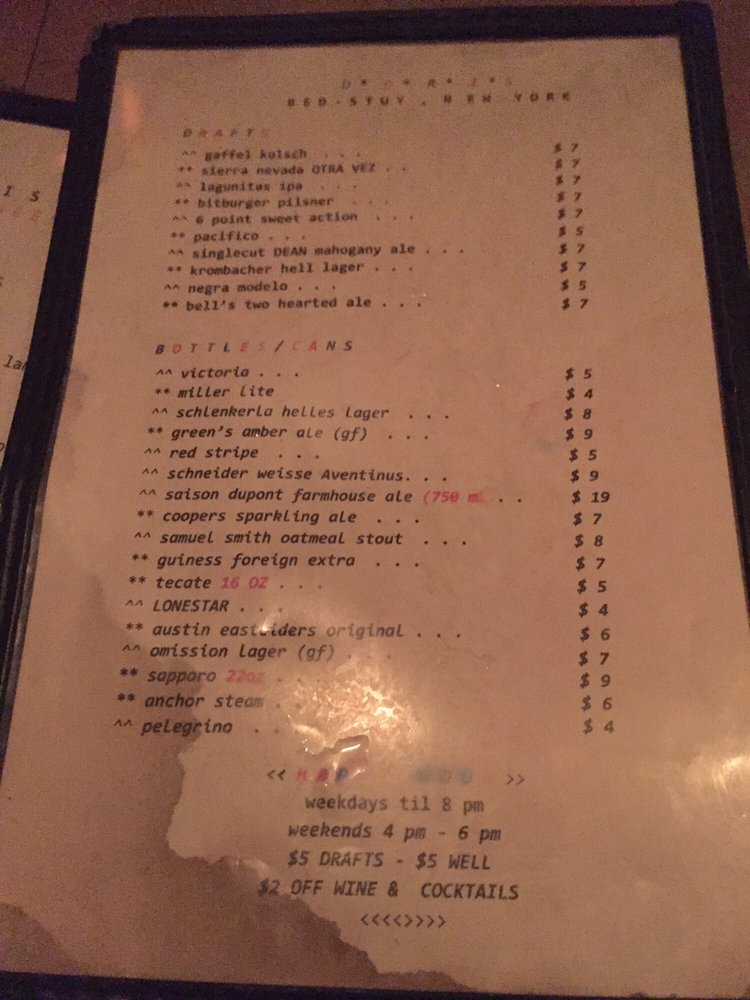 BED-STUY, NEW YORK
DRAFTS
^^ gaffel kolsch . . . $ 7
** sierra nevada OTRA VEZ . . $ 7
^^ lagunitas ipa . . . $ 7
** bitburger pilsner . . . $ 7
^^ 6 point sweet action . . . $ 7
** pacifico . . . $ 5
^^ singlecut DEAN mahogany ale . . . $ 7
** krombacher hell lager . . . $ 7
^^ negra modelo . . . $ 5
** bell's two hearted ale . . . $ 7
BOTTLES/CANS
^^ victoria . . . $ 5
** miller lite $ 4
^^ schlenkerla helles lager . . . $ 8
** green's amber ale (gf) . . . $ 9
^^ red stripe . . . $ 5
^^ schneider weisse Aventinus. . . $ 9
^^ saison dupont farmhouse ale (750 ml . . $ 19
** coopers sparkling ale . . . $ 7
^^ samuel smith oatmeal stout . . . $ 8
** guiness foreign extra . . . $ 7
** tecate 16 OZ . . . $ 5
^^ LONESTAR . . . $ 4
** austin eastciders original . . . $ 6
^^ omission lager (gf) . . . $ 7
** sapporo 22oz . . . $ 9
** anchor steam . . $ 6
^^ pelegrino . . $ 4
<< >>
weekdays til 8 pm
weekends 4 pm - 6 pm
$5 DRAFTS - $5 WELL
$2 OFF WINE & COCKTAILS
<<<<>>>>